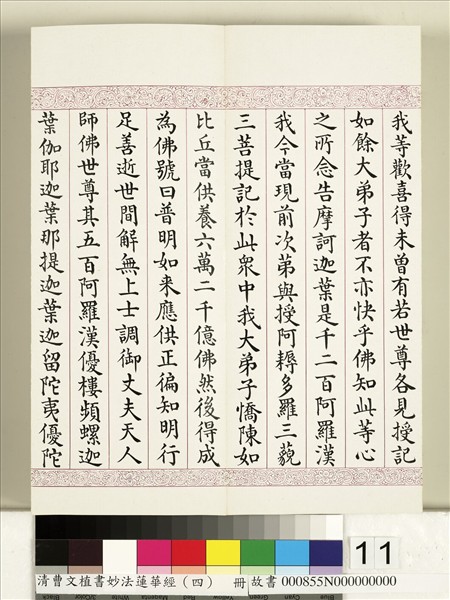 我等歡喜得未曾有若世尊各見授記
如餘大弟子者不亦快乎佛知此等心
之所念告摩訶迦葉是千二百阿羅漢
我今當現前次第與授阿耨多羅三藐
三菩提記於此眾中我大弟子憍陳如
比丘當供養六萬二千億佛然後得成
為佛號曰普明如来應供正徧知明行
足善逝世間解無上士調御丈夫天人
師佛世尊其五百阿羅漢優樓頻螺迦
葉伽耶迦葉那提迦葉迦留陀夷優陀
11
清曹文植書妙法蓮華經（四） 冊 故書 000855N000000000